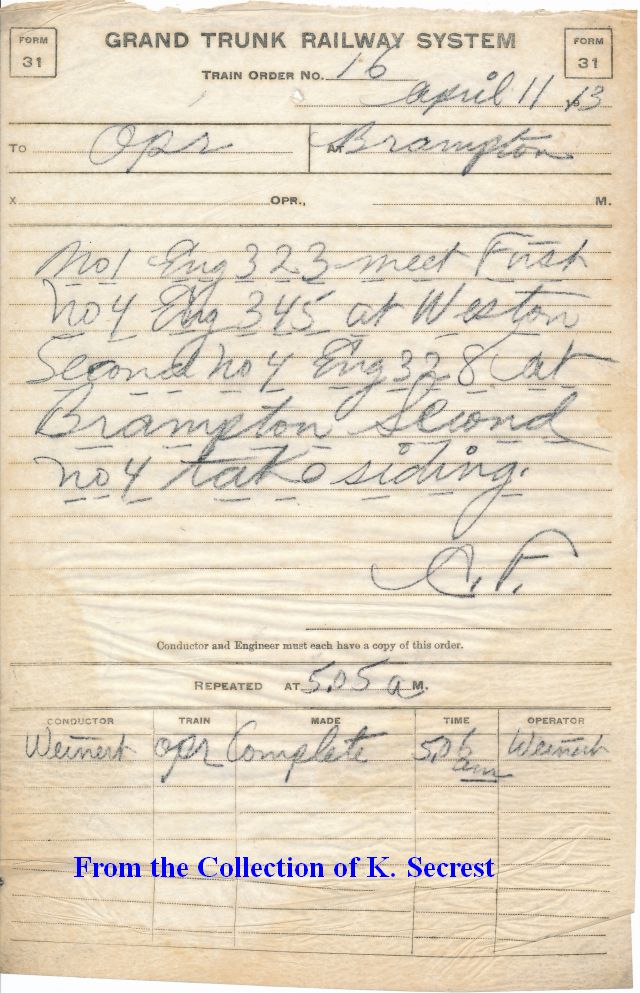 FORM 31
GRAND TRUNK RAILWAY SYSTEM
FORM 31
TRAIN ORDER No. 16
April 11 13
TO Opr AT Brampton
X OPR., M.
No 1 Eng 323 meet First
No 4 Eng 345 at Weston
Second No 4 Eng 328 at
Brampton Second
No 4 take siding.
A.F.
Conductor and Engineer must each have a copy of this order.
REPEATED AT 5.05 a M.
CONDUCTOR TRAIN MADE TIME OPERATOR
Weinert opr Complete 5.06 am Weinert
From the Collection of K. Secrest